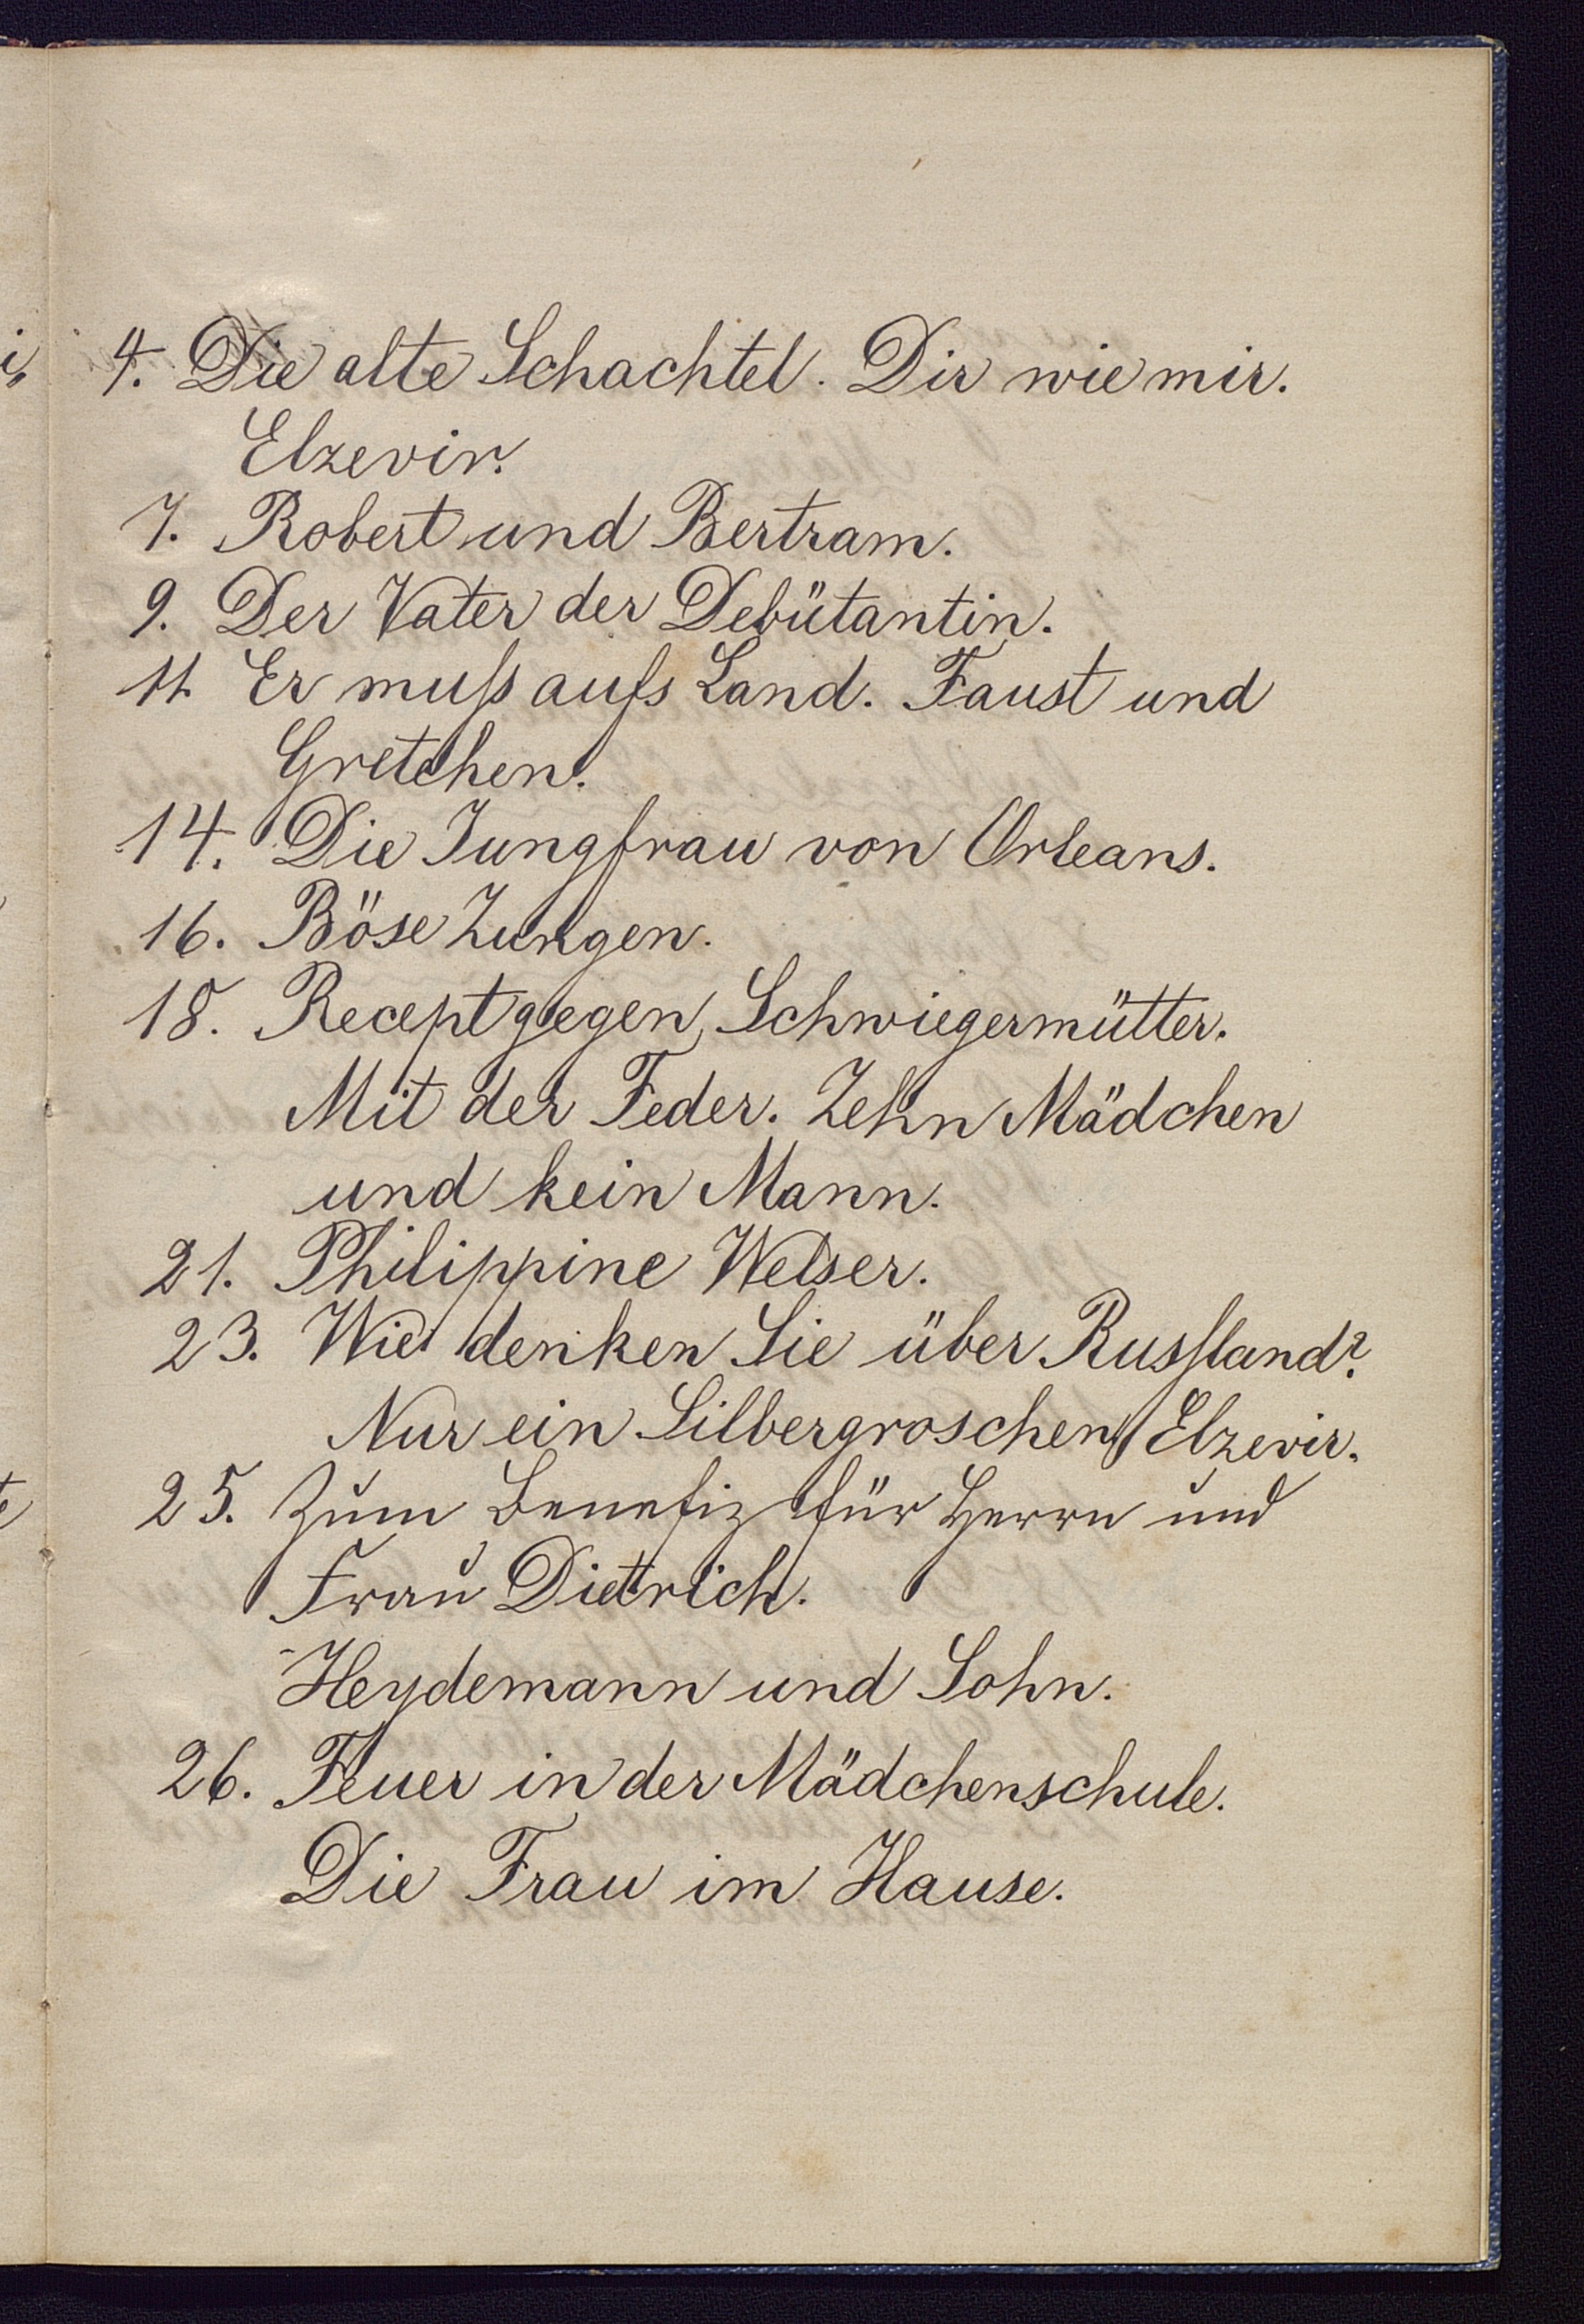 4. Die alte Schachtel. Dir wie mir.
Elzevir.
7. Robert und Bertram.
9. Der Vater der Debütantin.
11. Er muß aufs Land. Faust und
Gretchen.
14. Die Jungfrau von Orleans.
16. Böse Zungen.
18. Recept gegen Schwiegermütter.
Mit der Feder. Zehn Mädchen
und kein Mann.
21. Philippine Welser.
23. Wie denken Sie über Russland?
Nur ein Silbergroschen. Elzevir.
25. Zum Benefiz für Herrn und
Frau Dietrich.
Heydemann und Sohn.
26. Feuer in der Mädchenschule.
Die Frau im Hause.